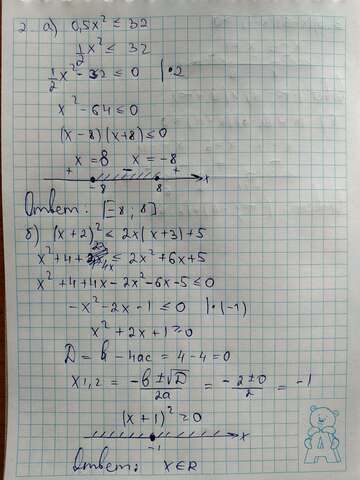 2. а) 0,5x² ≤ 32
1/2 x² ≤ 32
1/2 x² - 32 ≤ 0 |·2
x² - 64 ≤ 0
(x - 8)(x + 8) ≤ 0
x = 8 x = -8
+ - +
-8 8 x
Ответ: [-8; 8]
б) (x + 2)² ≤ 2x(x + 3) + 5
x² + 4 + 4x ≤ 2x² + 6x + 5
x² + 4 + 4x - 2x² - 6x - 5 ≤ 0
-x² - 2x - 1 ≤ 0 |·(-1)
x² + 2x + 1 ≥ 0
D = b - 4ac = 4 - 4 = 0
x1,2 = (-b ± √D)/2a = (-2 ± 0)/2 = -1
(x + 1)² ≥ 0
-1 x
Ответ: x∈R
A